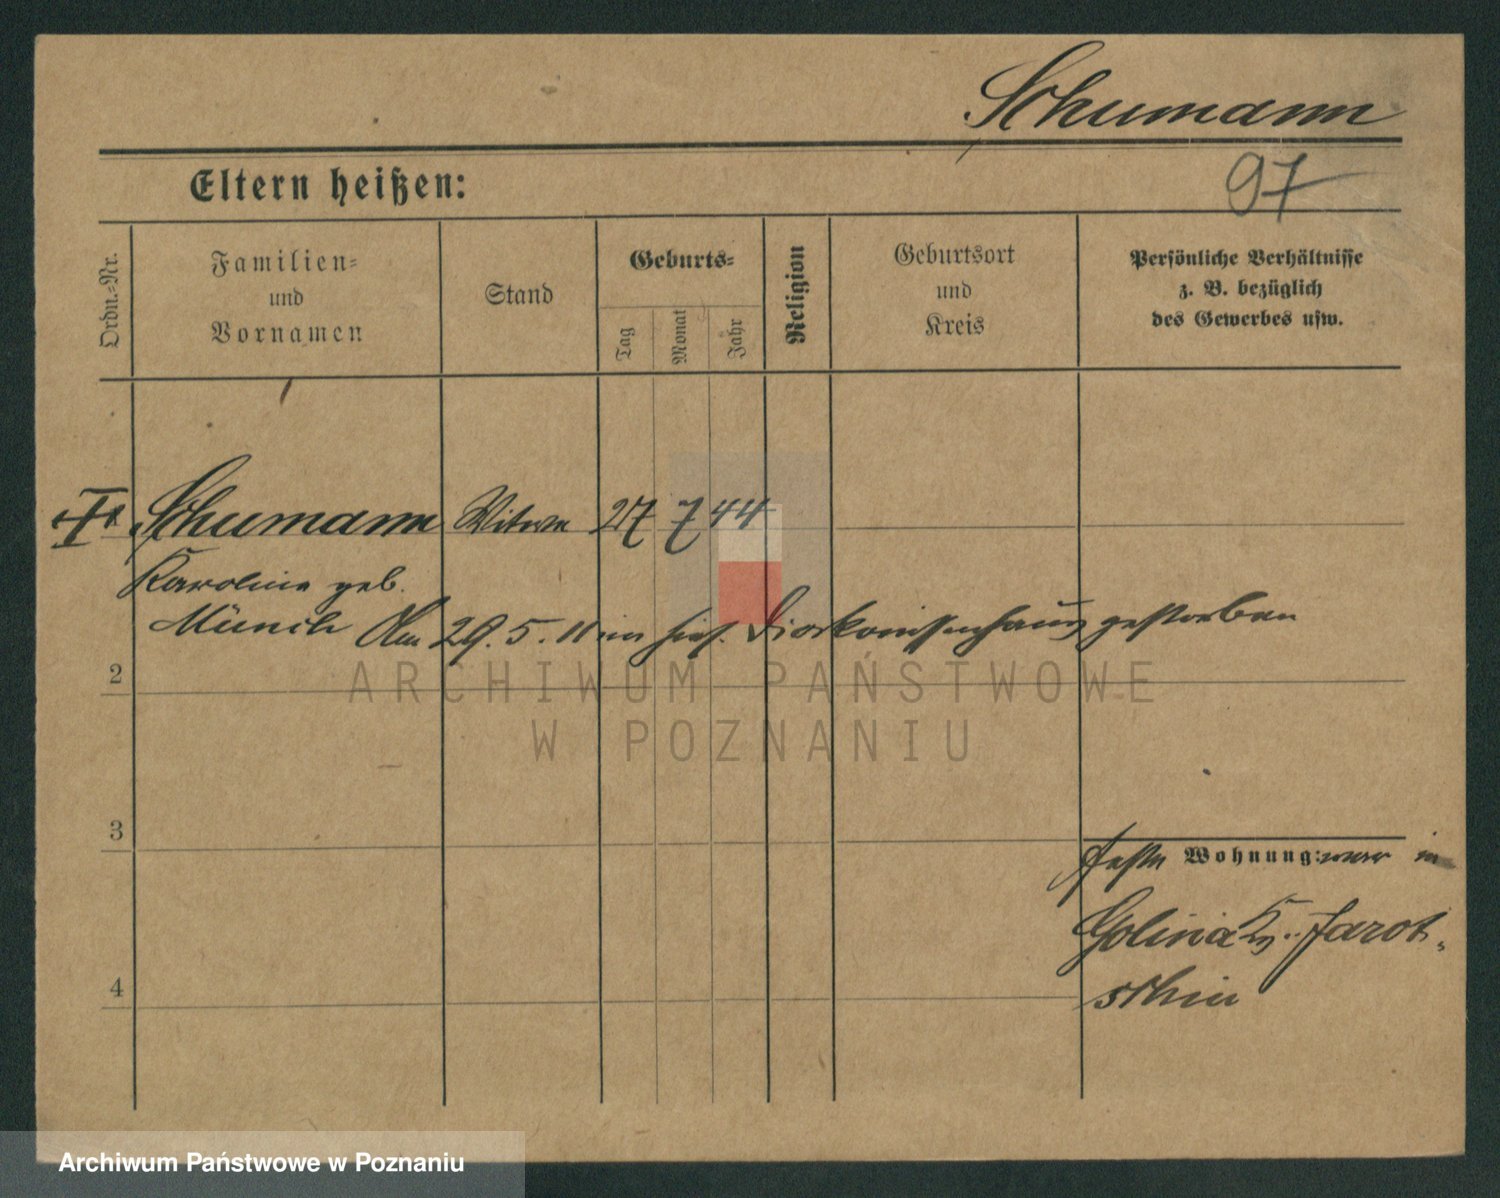 Schumann
97
Eltern heißen:
Ordn.-Nr.
Familien-
und
Vornamen
Stand
Geburts-
Tag
Monat
Jahr
Religion
Geburtsort
und
Kreis
Persönliche Verhältnisse
z. B. bezüglich
des Gewerbes usw.
Schumann Witwe 27 7 44
Karoline geb.
Münch Am 29.5.11 im hies. Diakonissenhaus gestorben
2
ARCHIWUM PAŃSTWOWE
W POZNANIU
3
feste Wohnung: war in
Golina Kr. Jarot-
schin
4
Archiwum Państwowe w Poznaniu